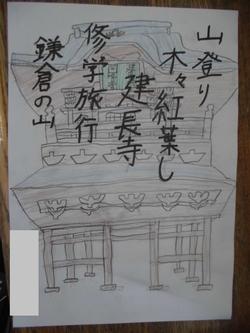 山登り
木々紅葉し
建長寺
修学旅行
鎌倉の山